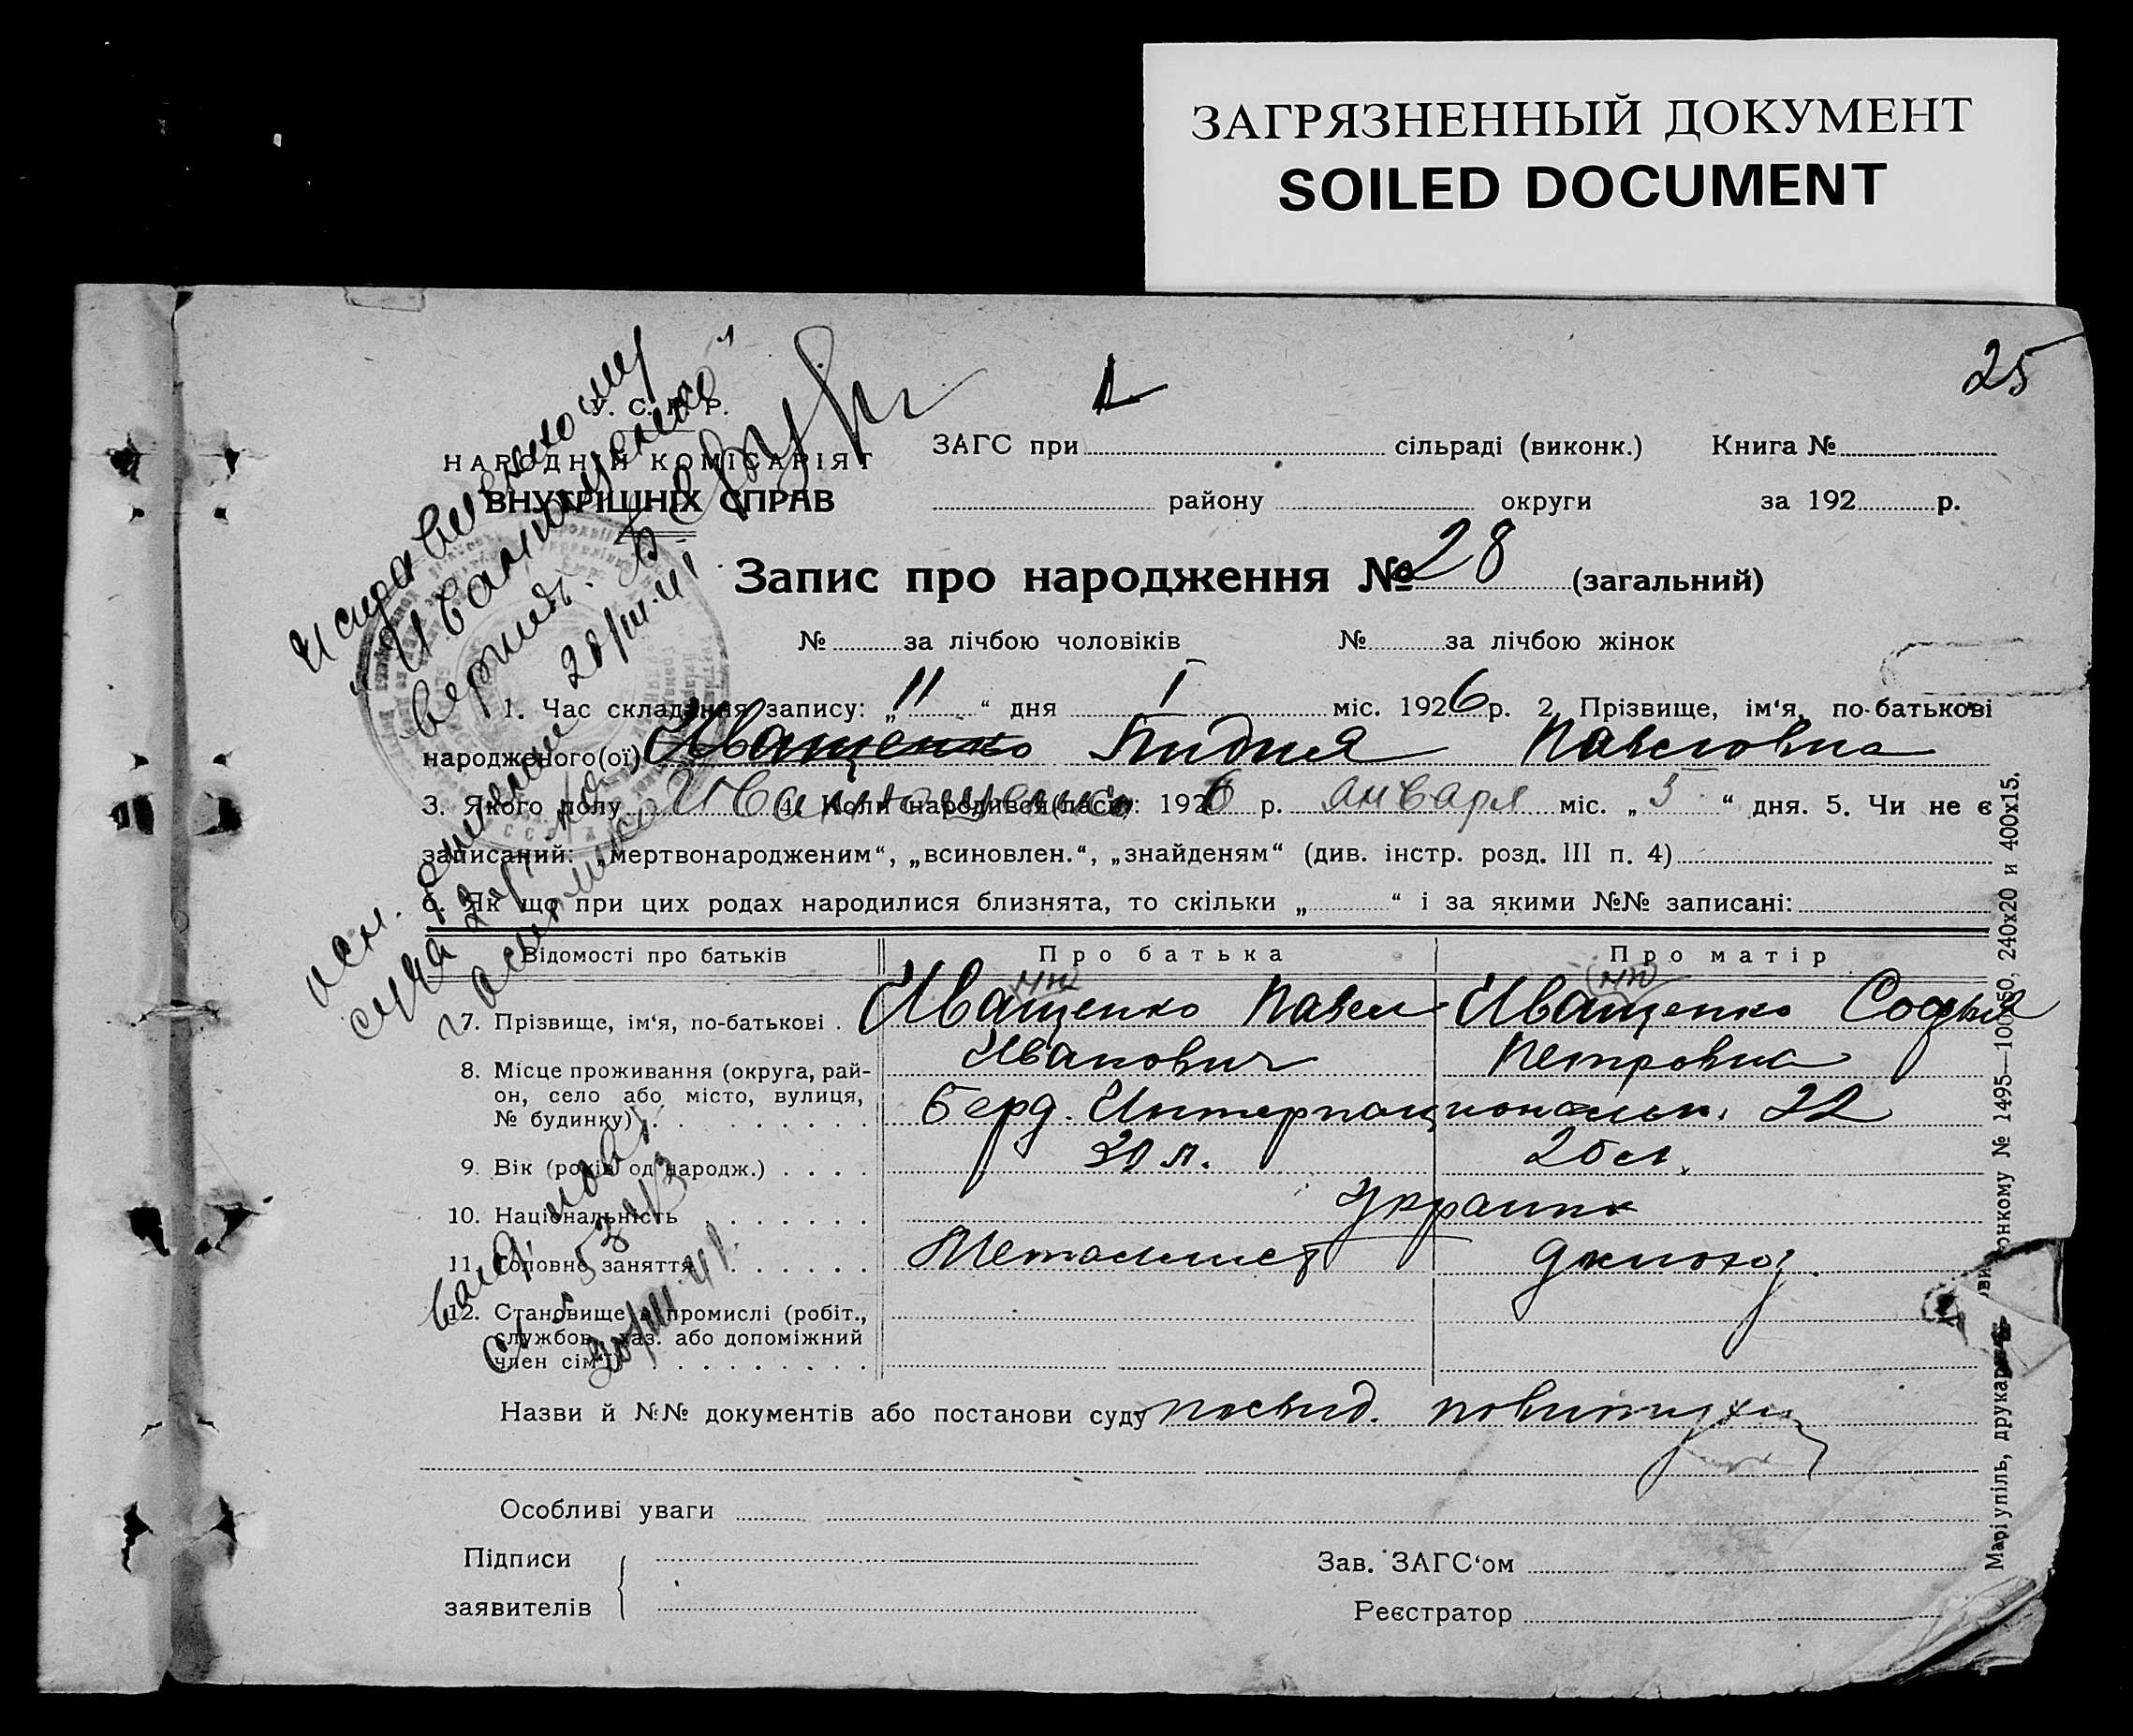 ЗАГРЯЗНЕННЫЙ ДОКУМЕНТ
SOILED DOCUMENT
25
У. С. Р. Р.
НАРОДНІЙ КОМІСАРІЯТ
ВНУТРІШНІХ СПРАВ
ЗАГС при сільраді (виконк.) Книга №
району округи за 192 р.
Запис про народження № 28 (загальний)
№ за лічбою чоловіків № за лічбою жінок
1. Час складання запису: „ 11 “ дня I міс. 1926 р. 2. Прізвище, ім‘я, по-батькові
народженого(ої) Иващенко Лидия Павловна
3. Якого полу Иванющенко 4. Коли народився(лася): 1926 р. января міс. „ 5 “ дня. 5. Чи не є
записаний: „мертвонародженим“, „всиновлен.“, „знайденям“ (див. інстр. розд. III п. 4)
6. Як що при цих родах народилися близнята, то скільки „ “ і за якими №№ записані:
Відомості про батьків Про батька Про матір
7. Прізвище, ім‘я, по-батькові . Иващенко Павел Иващенко Софья
Иванович Петровна
8. Місце проживання (округа, рай-
он, село або місто, вулиця,
№ будинку) Берд. Интернациональн. 22
9. Вік (років од народж.) 30 л. 25 л.
10. Національність Украин
11. Головне заняття Металист домохоз.
12. Становище в промислі (робіт.,
службов., хаз. або допоміжний
член сім‘ї)
Назви й №№ документів або постанови суду посвид. повитухи
Особливі уваги
Підписи
заявителів
Зав. ЗАГС‘ом
Реєстратор
Исправленному
„Иванющенко“
верить.
20/III.41
осн.
20/III 41
Маріупіль, друкарня
№ 1495—100х50, 240х20 и 400х15.